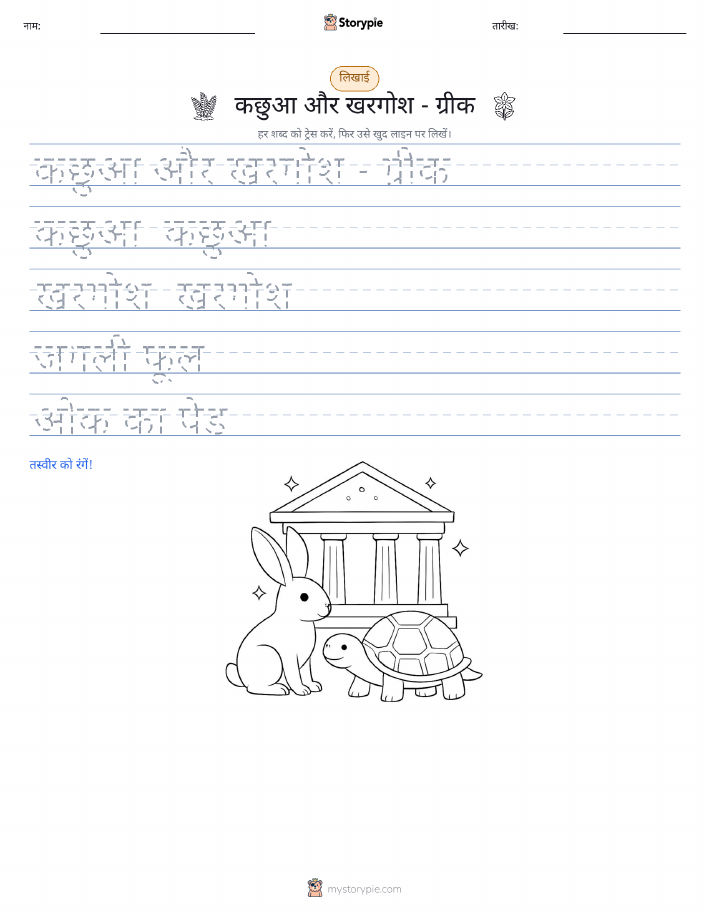 नाम:
Storypie
तारीख:
लिखाई
कछुआ और खरगोश - ग्रीक
हर शब्द को ट्रेस करें, फिर उसे खुद लाइन पर लिखें।
कछुआ और खरगोश - ग्रीक
कछुआ कछुआ
खरगोश खरगोश
जंगली फूल
ओक का पेड़
तस्वीर को रंगें!
mystorypie.com